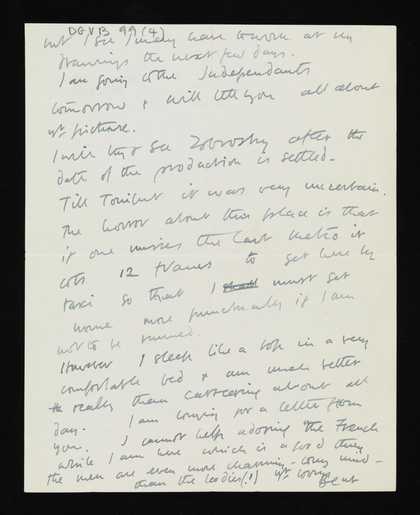 DGVB 99 (4)
but I see I may have to work at my
drawings the next few days.
I am going to the Independants
tomorrow & will tell you all about
yr picture.
I will try & see Zobrosky after the
date of the production is settled.
Till Tonight it was very uncertain.
The horror about this place is that
if one misses the last Metro it
costs 12 francs to get here by
taxi so that I must get
home more punctually if I am
not to be ruined.
However I sleep like a top in a very
comfortable bed & am much better
really than careering about all
day. I am longing for a letter from
you. I cannot help adoring the French
while I am here which is a good thing
the men are even more charming - to my mind -
than the ladies(!) yr loving